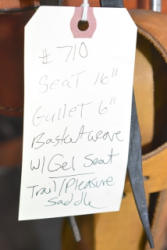 # 710
Seat 16"
Gullet 6"
Basketweave
W/ Gel Seat
Trail/Pleasure
Saddle